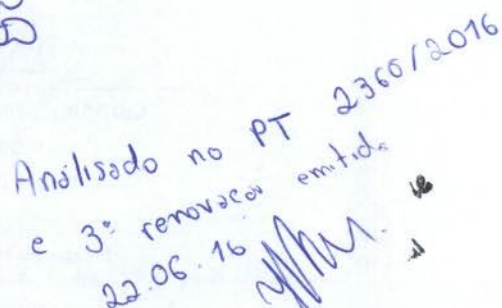 Analisado no PT 2360/2016
e 3ª renovação emitida
22.06.16